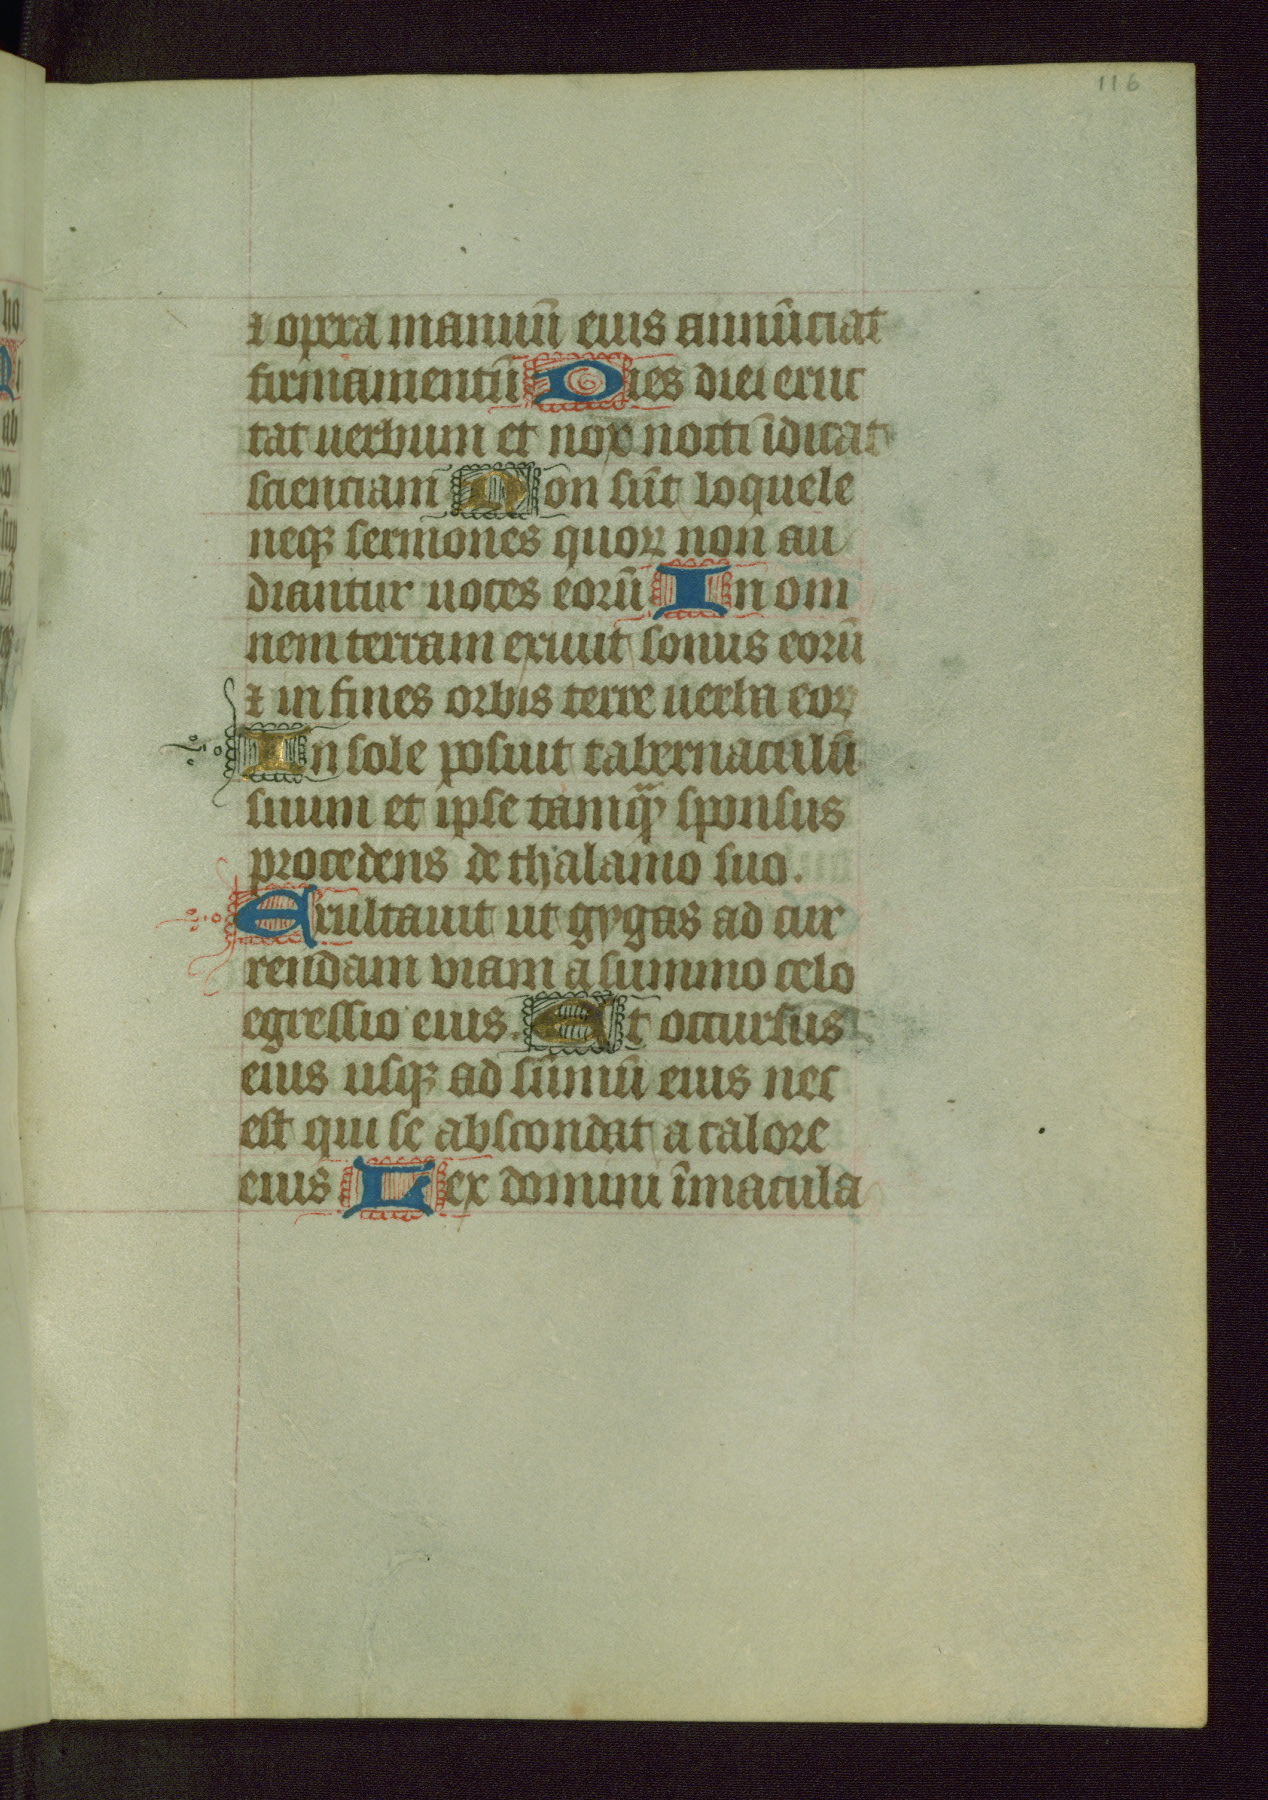 116
⁊ opera manuū eius annūciat
firmamentū Dies diei eruc
tat uerbum et nox nocti īdicat
scienciam Non sūt loquele
neqꝫ sermones quoꝝ non au
diantur uoces eorū In om
nem terram exiuit sonus eorū
⁊ in fines orbis terre uerba eoꝝ
In sole posuit tabernaculū
suum et ipse tamqᷓ sponsus
procedens de thalamo suo.
Exultauit ut gygas ad cur
rendam uiam a summo celo
egressio eius. Et occursus
eius usqꝫ ad sūmū eius nec
est qui se abscondat a calore
eius Lex domini īmacula